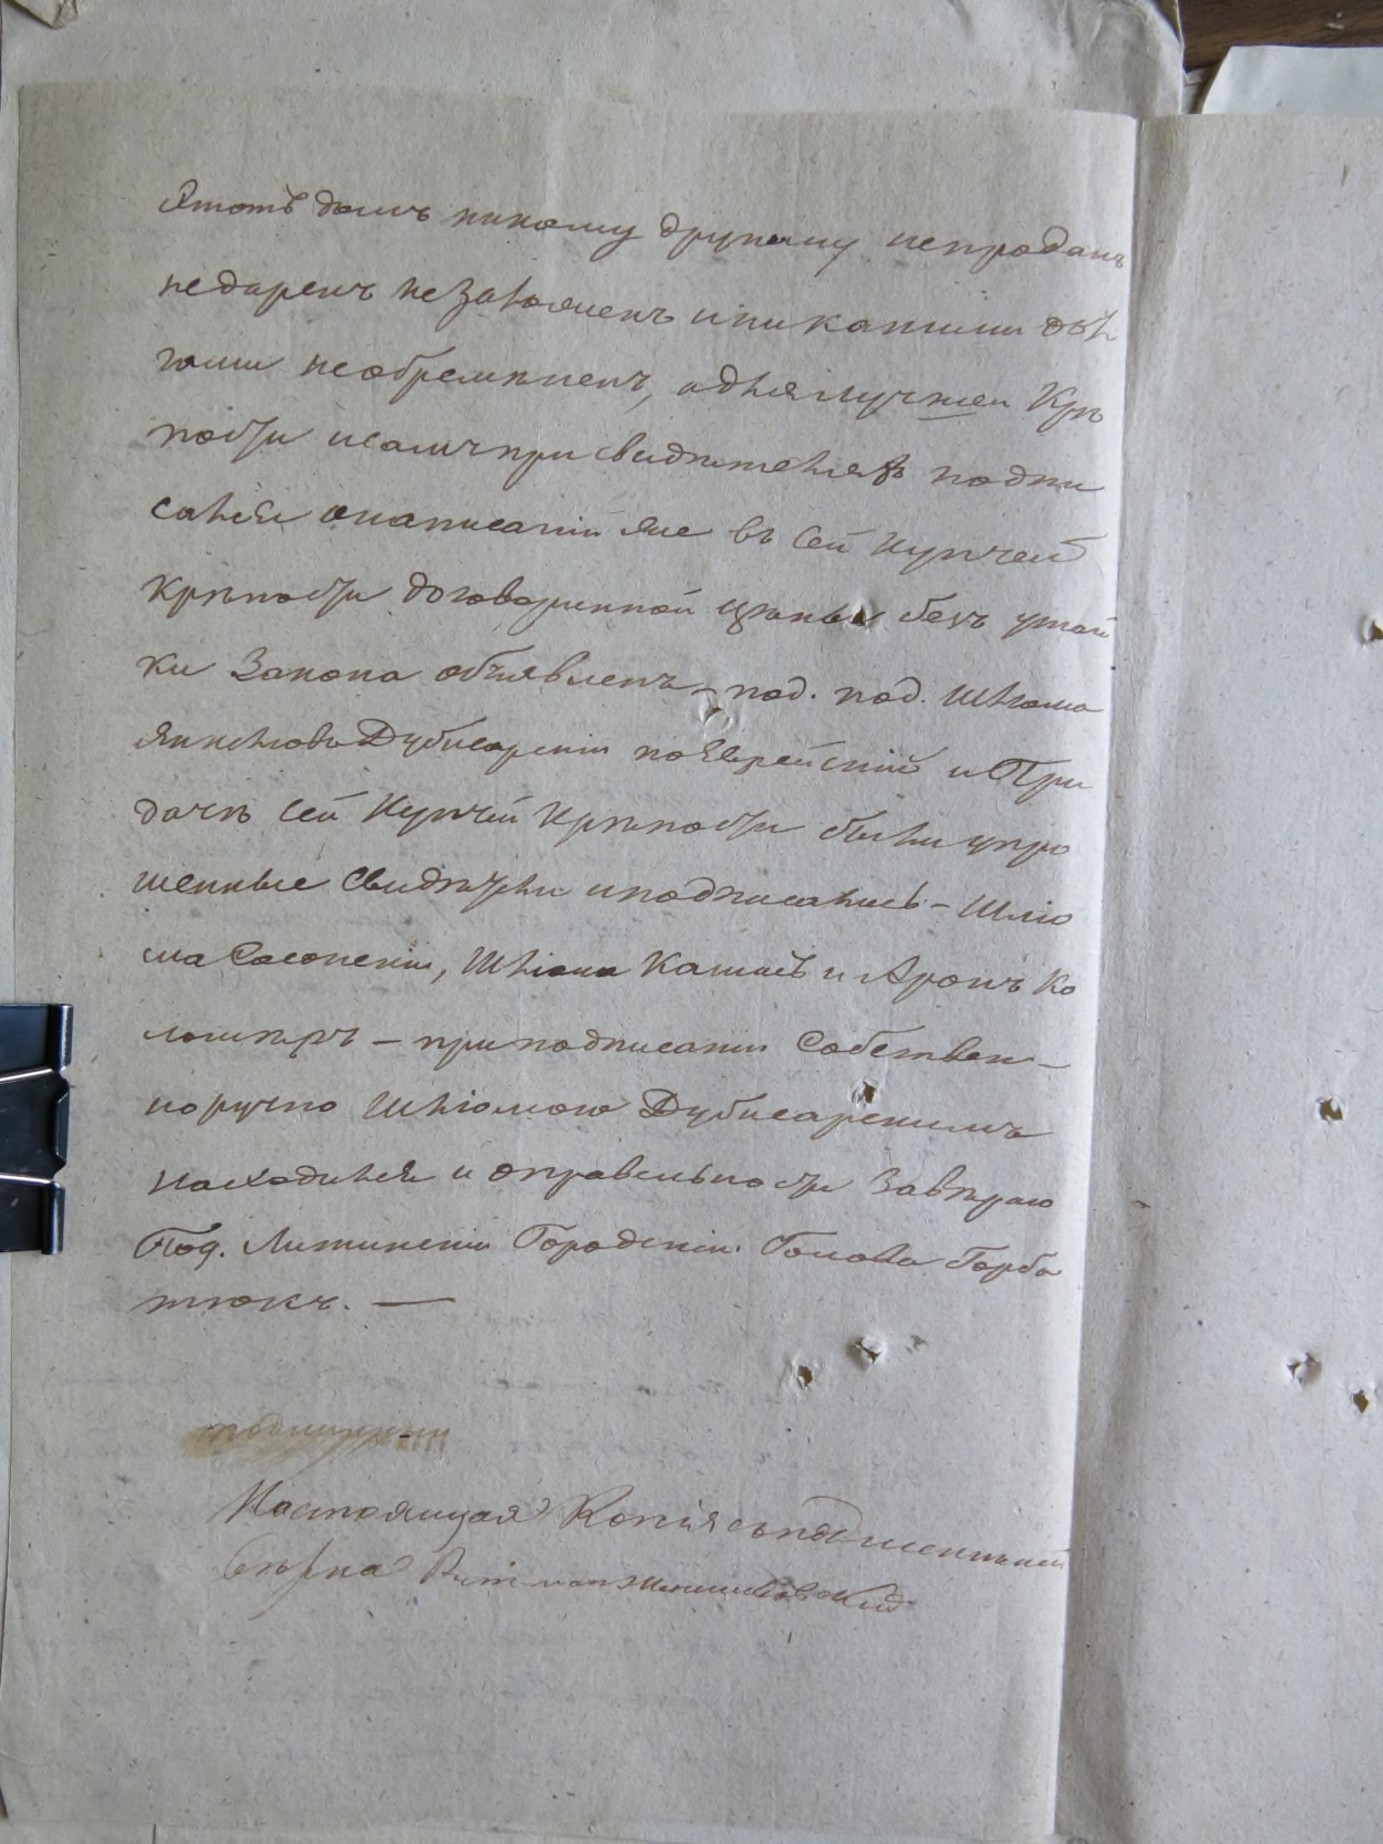 Этотъ домъ никому другому непроданъ
недаренъ незаложенъ иникакими дол
гами необремѣненъ, адлялучшей Крѣ
пости исамъпри свидѣтеляхъ подпи
сался онаписаній же въ сей Купчей
Крѣпости договоренной цѣны безъ утай
ки Закона объявленъ – под. под. Шлома
Янкелювъ Дубисарскій поЕврейскій и При
дачѣ сей Купчій Крѣпости были упро
шенные свидѣтели иподписались – Шлю
ма Сасонскій, Шліома и Аронъ Ко
– приподписаніи Собствен–
норучно Шліомою Дубисарскимъ
находился и справельности Завѣраю
Под. Литинскій Городскій Голова Горба
тюкъ. —
Настоящая Копія